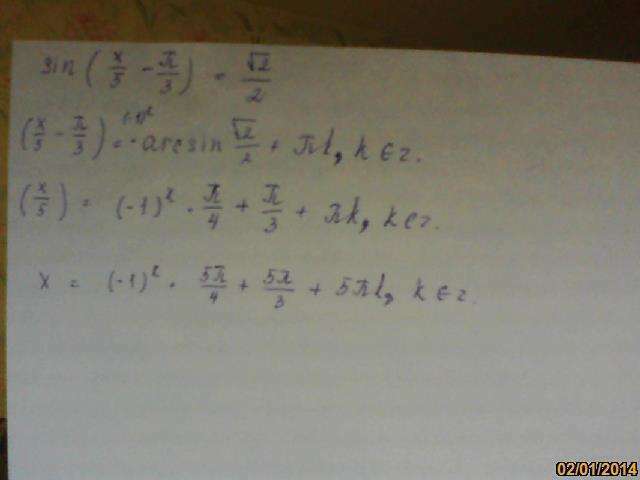 sin ( x/5 - π/3 ) = √2/2
( x/5 - π/3 ) = (-1)^k · arcsin √2/2 + πk, k ∈ z.
( x/5 ) = (-1)^k · π/4 + π/3 + πk, k ∈ z.
x = (-1)^k · 5π/4 + 5π/3 + 5πk, k ∈ z.
02/01/2014